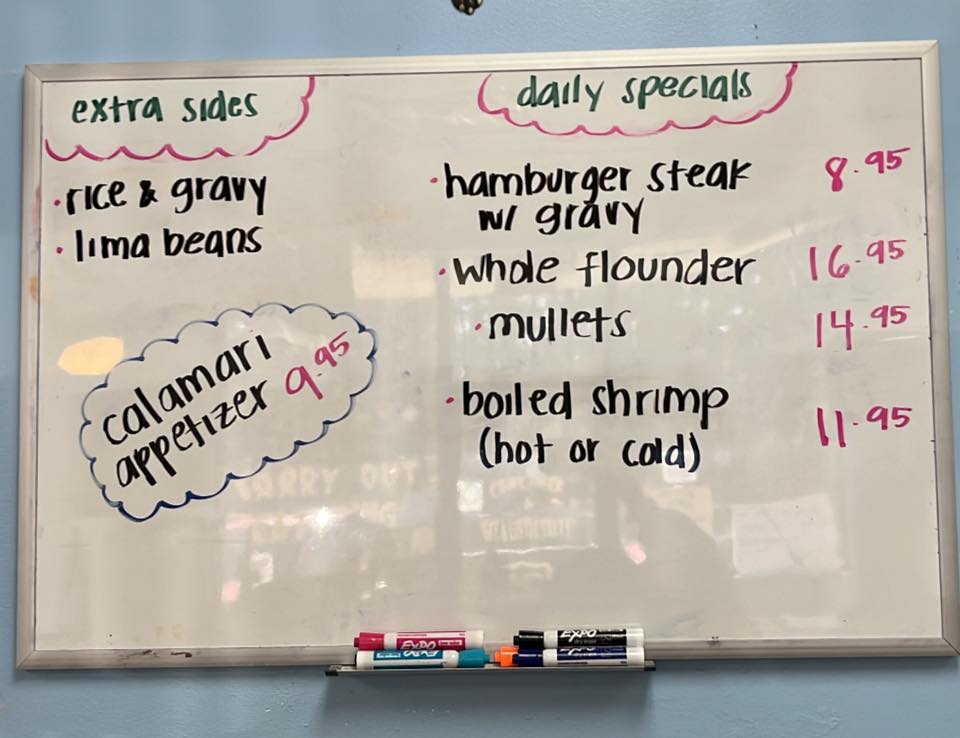 extra sides
· rice & gravy
· lima beans
calamari
appetizer 9.95
daily specials
· hamburger steak 8.95
w/ gravy
· whole flounder 16.95
· mullets 14.95
· boiled shrimp 11.95
(hot or cold)
CARRY OUT
EXPO
EXPO
EXPO